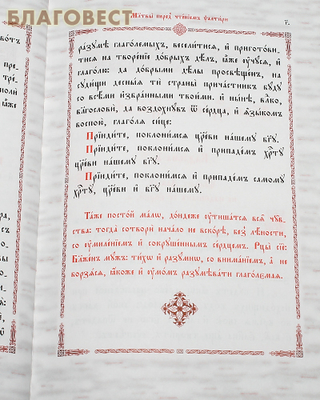 БЛАГОВЕСТ
Мл҃твы пред̾ чте́нїемъ ѱалти́ри
разꙋмѣ́ѧ глаго́лемыхъ, весели́тисѧ, и҆ пригото́ви-
тисѧ на творе́нїе до́брыхъ дѣ́лъ, ꙗ҆̀же ᲂу҆чꙋ́сѧ, и҆
глаго́лю: да до́брыми дѣ́лы просвѣще́нъ, на
сꙋди́щи десны́ѧ тѝ страны̀ прича́стникъ бꙋ́дꙋ
со всѣ́ми и҆збра́нными твои́ми. и҆ ны́нѣ, влⷣко,
блгⷭ҇овѝ, да воздохнꙋ́въ ѿ се́рдца, и҆ ѧ҆зы́комъ
воспою̀, глаго́лѧ си́це:
Прїиди́те, поклони́мсѧ цр҃е́ви на́шемꙋ бг҃ꙋ.
Прїиди́те, поклони́мсѧ и҆ припаде́мъ хрⷭ҇тꙋ̀
цр҃е́ви на́шемꙋ бг҃ꙋ.
Прїиди́те, поклони́мсѧ и҆ припаде́мъ самомꙋ̀
хрⷭ҇тꙋ̀, цр҃е́ви и҆ бг҃ꙋ на́шемꙋ.
Та́же посто́й ма́лѡ, до́ндеже ᲂу҆тиша́тсѧ всѧ̑ чꙋ̑в-
ства: тогда̀ сотворѝ нача́ло не вско́рѣ, без̾ лѣ́ности,
со ᲂу҆миле́нїемъ и҆ сокрꙋше́ннымъ се́рдцемъ. Рцы̀ сїѐ:
Бл҃же́нъ мꙋ́жъ: ти́хѡ и҆ разꙋ́мнѡ, со внима́нїемъ, а҆ не
борзѧ́сѧ, ꙗ҆́коже и҆ ᲂу҆мо́мъ разꙋмѣва́ти глаго́лемаѧ.